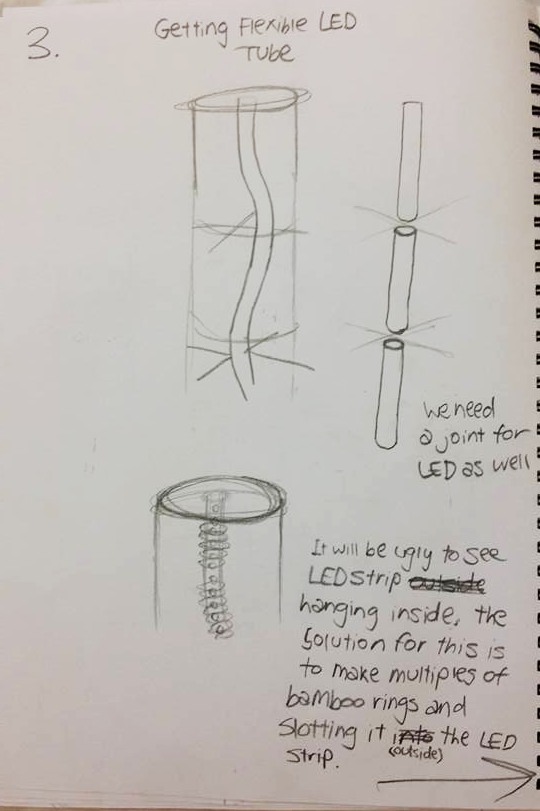 3.
Getting Flexible LED
Tube
we need
a joint for
LED as well
It will be ugly to see
LED strip outside
hanging inside, the
solution for this is
to make multiples of
bamboo rings and
slotting it into the LED
(outside)
strip.